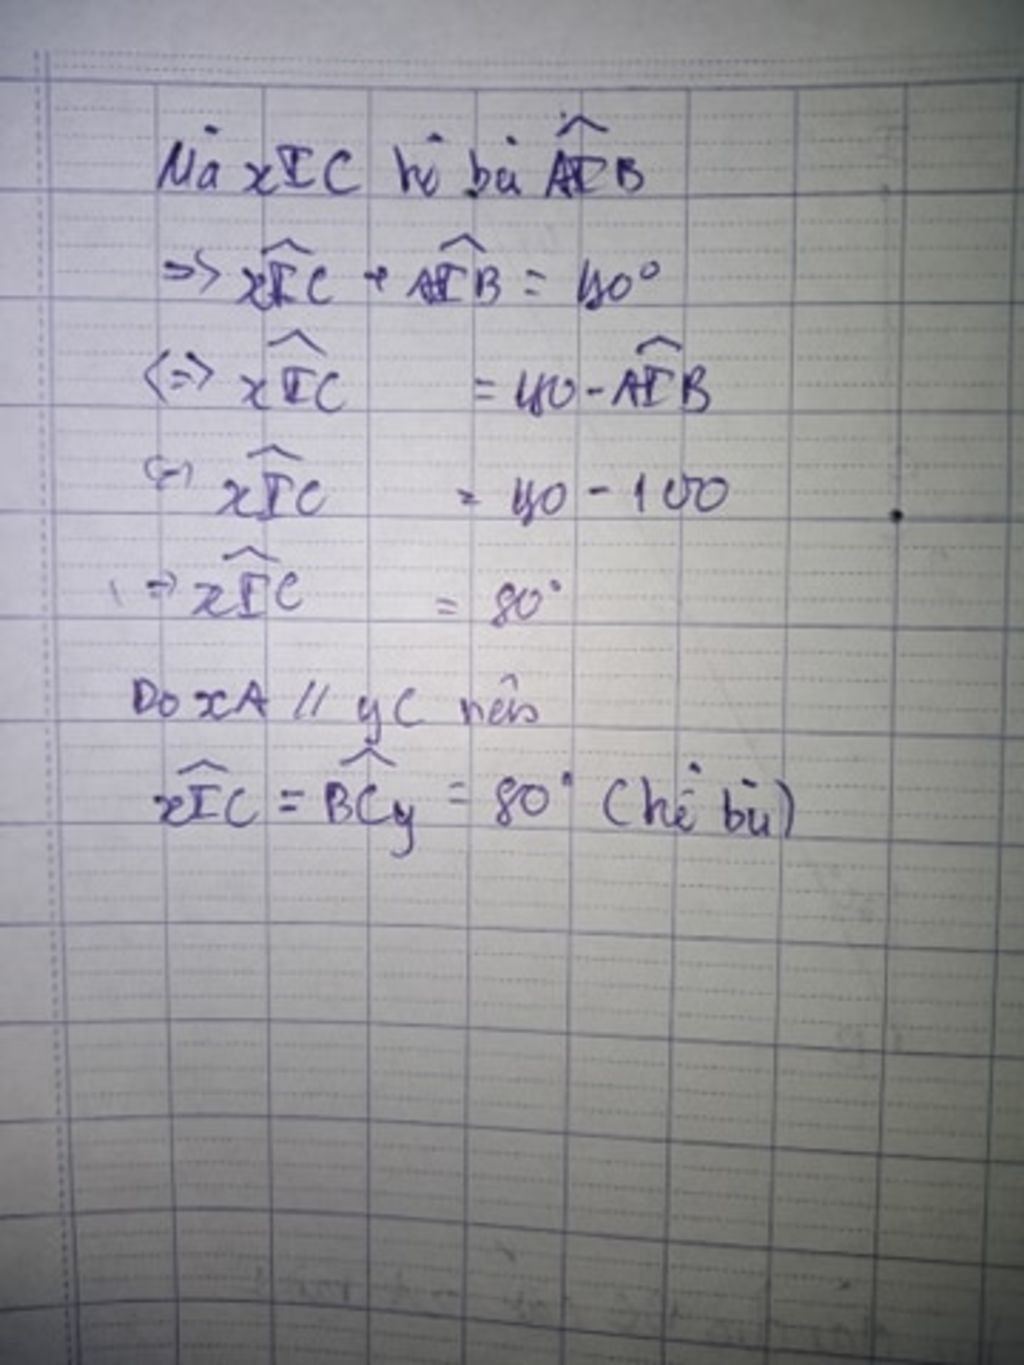 Mà xIC kề bù AIB
=> xIC + AIB = 180°
<=> xIC = 180 - AIB
<=> xIC = 180 - 100
=> xIC = 80°
Do xA // yC nên
xIC = BCy = 80° (kề bù)